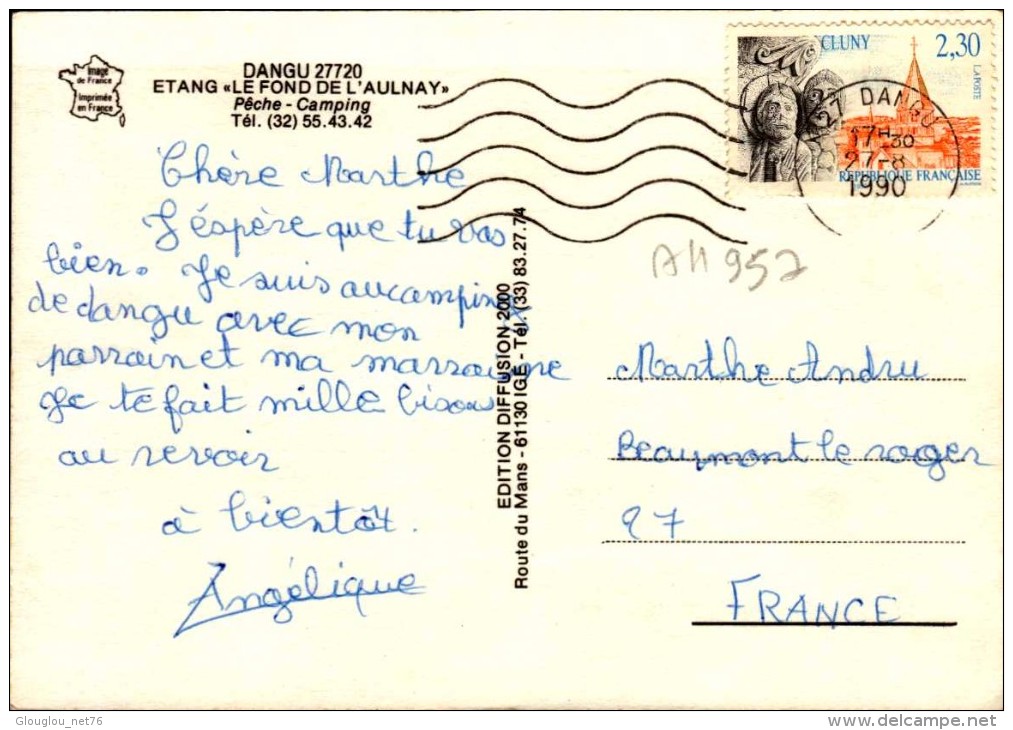 Image
de France
Imprimée
en France
DANGU 27720
ETANG «LE FOND DE L'AULNAY»
Pêche - Camping
Tél. (32) 55.43.42
Chère Marthe
J'éspère que tu vas
bien. Je suis au camping
de dangu avec mon
parrain et ma marraine
Je te fait mille bisous
au revoir
à bientôt.
Angélique
EDITION DIFFUSION 2000
Route du Mans - 61130 IGE - Tél. (33) 83.27.74
CLUNY
2,30
LA POSTE
RÉPUBLIQUE FRANÇAISE
27 DANGU
17H30
27-8
1990
AH 957
Marthe Andru
Beaumont le roger
27
FRANCE
Glouglou_net76
delcampe.net